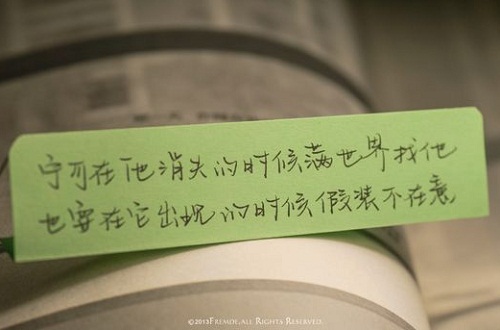 宁可在他消失的时候满世界找他
也要在它出现的时候假装不在意
©2013Fremde.All Rights Reserved.